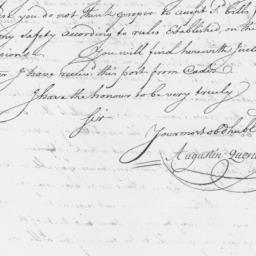 you do not think proper to accept ye bills
my Safety according to rules Established, on the
sions. You will find herewith Incl
I have receiv'd this post from Cadiz
I have the honour to be very truely
Sir
Your most obd: hubl
Augustin Quen